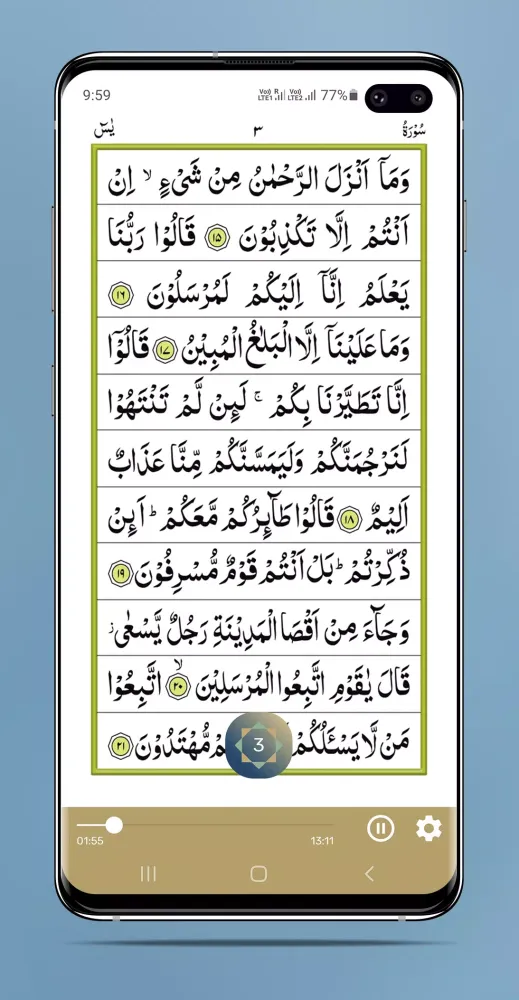 9:59 Vo) R LTE1 Vo) LTE2 77%
سُوْرَةُ ٣ يٰسٓ
وَمَآ اَنْزَلَ الرَّحْمٰنُ مِنْ شَىْءٍ ۙ اِنْ
اَنْتُمْ اِلَّا تَكْذِبُوْنَ ۝۱۵ قَالُوْا رَبُّنَا
يَعْلَمُ اِنَّآ اِلَيْكُمْ لَمُرْسَلُوْنَ ۝۱۶
وَمَا عَلَيْنَآ اِلَّا الْبَلٰغُ الْمُبِيْنُ ۝۱۷ قَالُوْٓا
اِنَّا تَطَيَّرْنَا بِكُمْ ۚ لَئِنْ لَّمْ تَنْتَهُوْا
لَنَرْجُمَنَّكُمْ وَلَيَمَسَّنَّكُمْ مِّنَّا عَذَابٌ
اَلِيْمٌ ۝۱۸ قَالُوْا طَآئِرُكُمْ مَّعَكُمْ ؕ اَئِنْ
ذُكِّرْتُمْ ؕ بَلْ اَنْتُمْ قَوْمٌ مُّسْرِفُوْنَ ۝۱۹
وَجَآءَ مِنْ اَقْصَا الْمَدِيْنَةِ رَجُلٌ يَّسْعٰى ز
قَالَ يٰقَوْمِ اتَّبِعُوا الْمُرْسَلِيْنَ ۙ ۝۲۰ اتَّبِعُوْا
مَنْ لَّا يَسْـَٔلُكُمْ مْ مُّهْتَدُوْنَ ۝۲۱
3
01:55 13:11